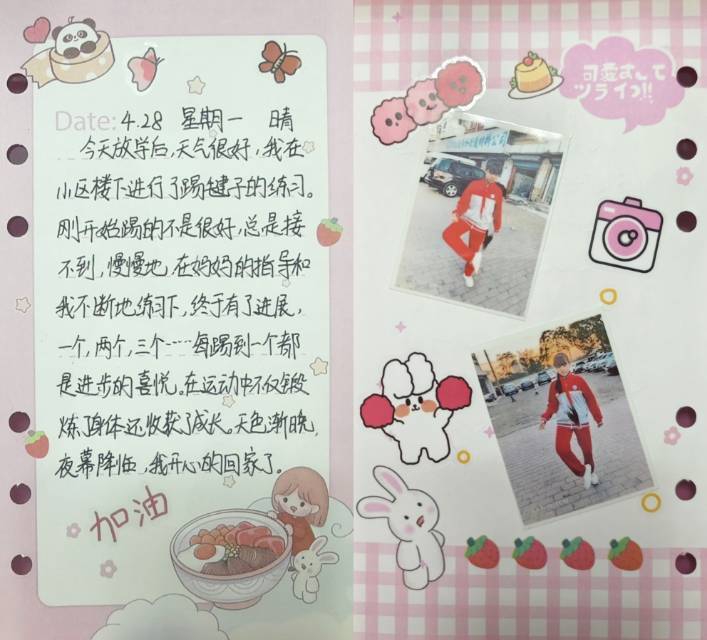 Date: 4.28 星期一 晴
今天放学后,天气很好,我在
小区楼下进行了踢毽子的练习。
刚开始踢的不是很好,总是接
不到,慢慢地,在妈妈的指导和
我不断地练习下,终于有了进展,
一个,两个,三个……每踢到一个都
是进步的喜悦。在运动中不仅锻
炼了身体还收获了成长。天色渐晚,
夜幕降临,我开心的回家了。
加油
可愛すして
ツライつ!!